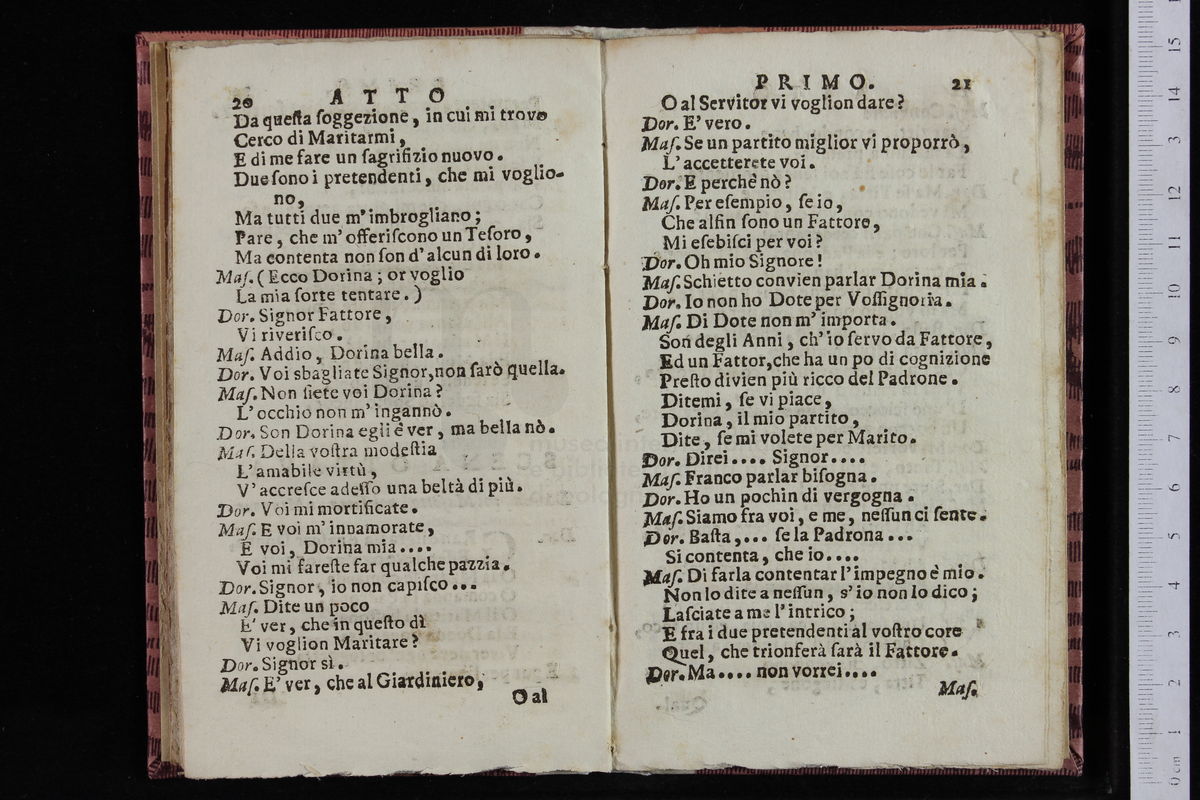 20 ATTO
Da questa soggezione, in cui mi trovo
Cerco di Maritarmi,
E di me fare un sagrifizio nuovo.
Due sono i pretendenti, che mi voglio-
no,
Ma tutti due m'imbrogliano;
Pare, che m'offeriscono un Tesoro,
Ma contenta non son d'alcun di loro.
Mas. (Ecco Dorina; or voglio
La mia sorte tentare.)
Dor. Signor Fattore,
Vi riverisco.
Mas. Addio, Dorina bella.
Dor. Voi sbagliate Signor, non sarò quella.
Mas. Non siete voi Dorina?
L'occhio non m'ingannò.
Dor. Son Dorina egli è ver, ma bella nò.
Mas. Della vostra modestia
L'amabile virtù,
V'accresce adesso una beltà di più.
Dor. Voi mi mortificate.
Mas. E voi m'innamorate,
E voi, Dorina mia....
Voi mi fareste far qualche pazzia.
Dor. Signor, io non capisco...
Mas. Dite un poco
E' ver, che in questo dì
Vi voglion Maritare?
Dor. Signor sì.
Mas. E' ver, che al Giardiniero,
O al
PRIMO. 21
O al Servitor vi voglion dare?
Dor. E' vero.
Mas. Se un partito miglior vi proporrò,
L'accetterete voi.
Dor. E perchè nò?
Mas. Per esempio, se io,
Che alfin sono un Fattore,
Mi esebisci per voi?
Dor. Oh mio Signore!
Mas. Schietto convien parlar Dorina mia.
Dor. Io non ho Dote per Vossignoria.
Mas. Di Dote non m'importa.
Son degli Anni, ch'io servo da Fattore,
Ed un Fattor, che ha un po di cognizione
Presto divien più ricco del Padrone.
Ditemi, se vi piace,
Dorina, il mio partito,
Dite, se mi volete per Marito.
Dor. Direi.... Signor....
Mas. Franco parlar bisogna.
Dor. Ho un pochin di vergogna.
Mas. Siamo fra voi, e me, nessun ci sente.
Dor. Basta,... se la Padrona...
Si contenta, che io....
Mas. Di farla contentar l'impegno è mio.
Non lo dite a nessun, s'io non lo dico;
Lasciate a me l'intrico;
E fra i due pretendenti al vostro core
Quel, che trionferà sarà il Fattore.
Dor. Ma.... non vorrei....
Mas.